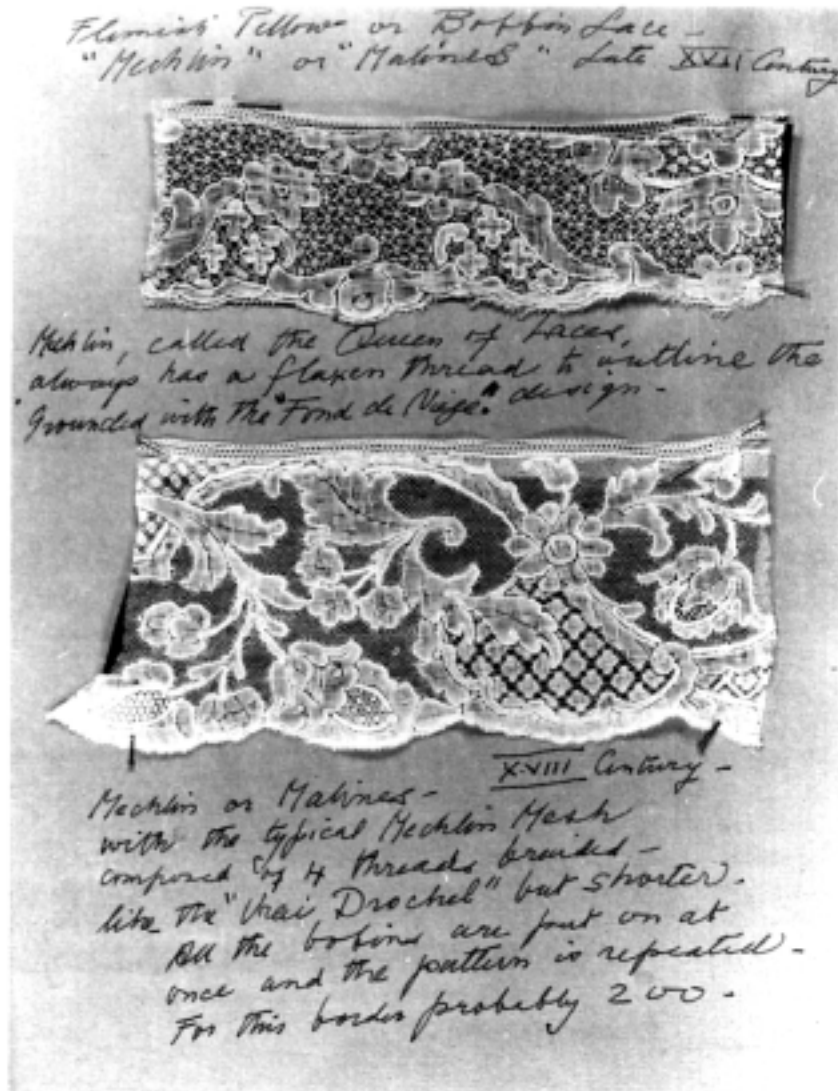 Flemish Pillow or Bobbin Lace -
"Mechlin" or "Malines" Late XVII Century
Mechlin, called the Queen of Laces,
always has a flaxen thread to outline the
Grounded with the "Fond de Neige." design -
XVIII Century -
Mechlin or Malines -
with the typical Mechlin Mesh
composed of 4 threads braided -
like the "Vrai Drochel" but shorter.
All the bobins are put on at
once and the pattern is repeated -
For this border probably 200 -